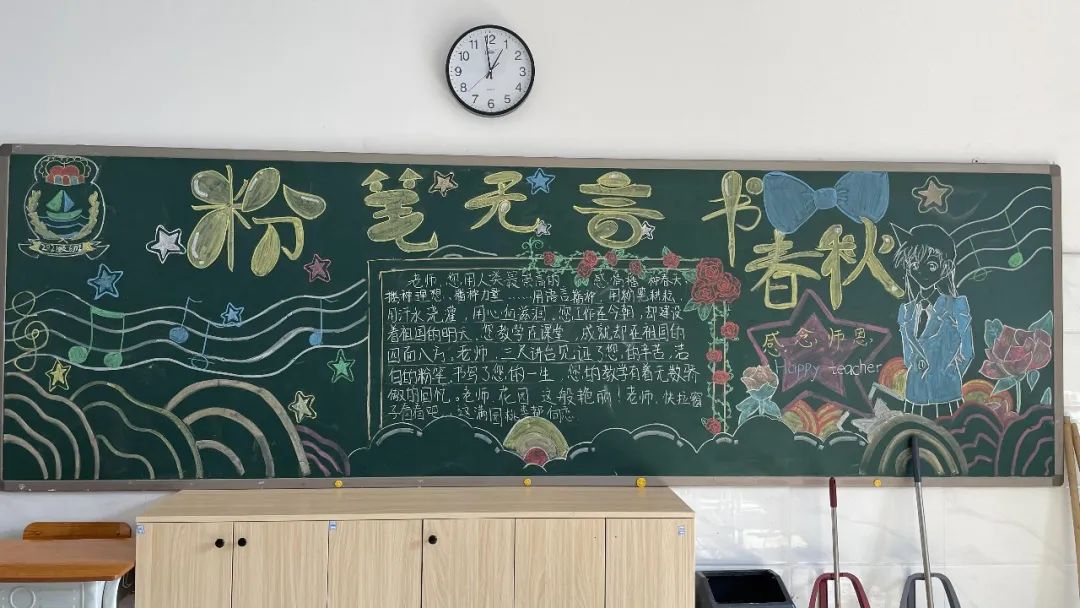 粉笔无言书春秋
老师,您用人类最崇高的
感情播种春天
播种理想,播种力量……用语言
用汗水浇灌,用心血滋润。您工作在今朝,却建设
着祖国的明天,您教学在课堂,成就却在祖国的
四面八方。老师,三尺讲台见证了您的辛苦,
的粉笔书写了您的一生,您的教学有着无数骄
傲的回忆。老师,花园这般艳丽!老师,快拉窗
子看看吧,这满园
感念师恩
Happy teacher
12
1
2
3
4
5
6
7
8
9
10
11